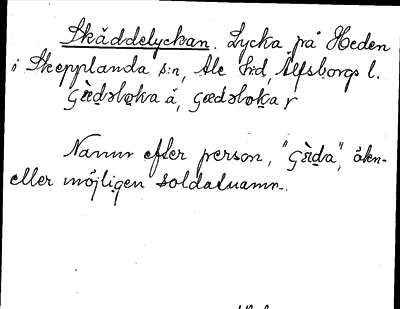 Skäddelyckan. Lycka på Heden
i Skepplanda s:n, Ale hd, Älfsborgs l.
Namn efter person, "Gäda", ökn-
eller möjligen soldatnamn.